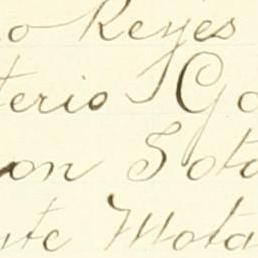 o Reyes
terio Go
on Soto
nte Mota